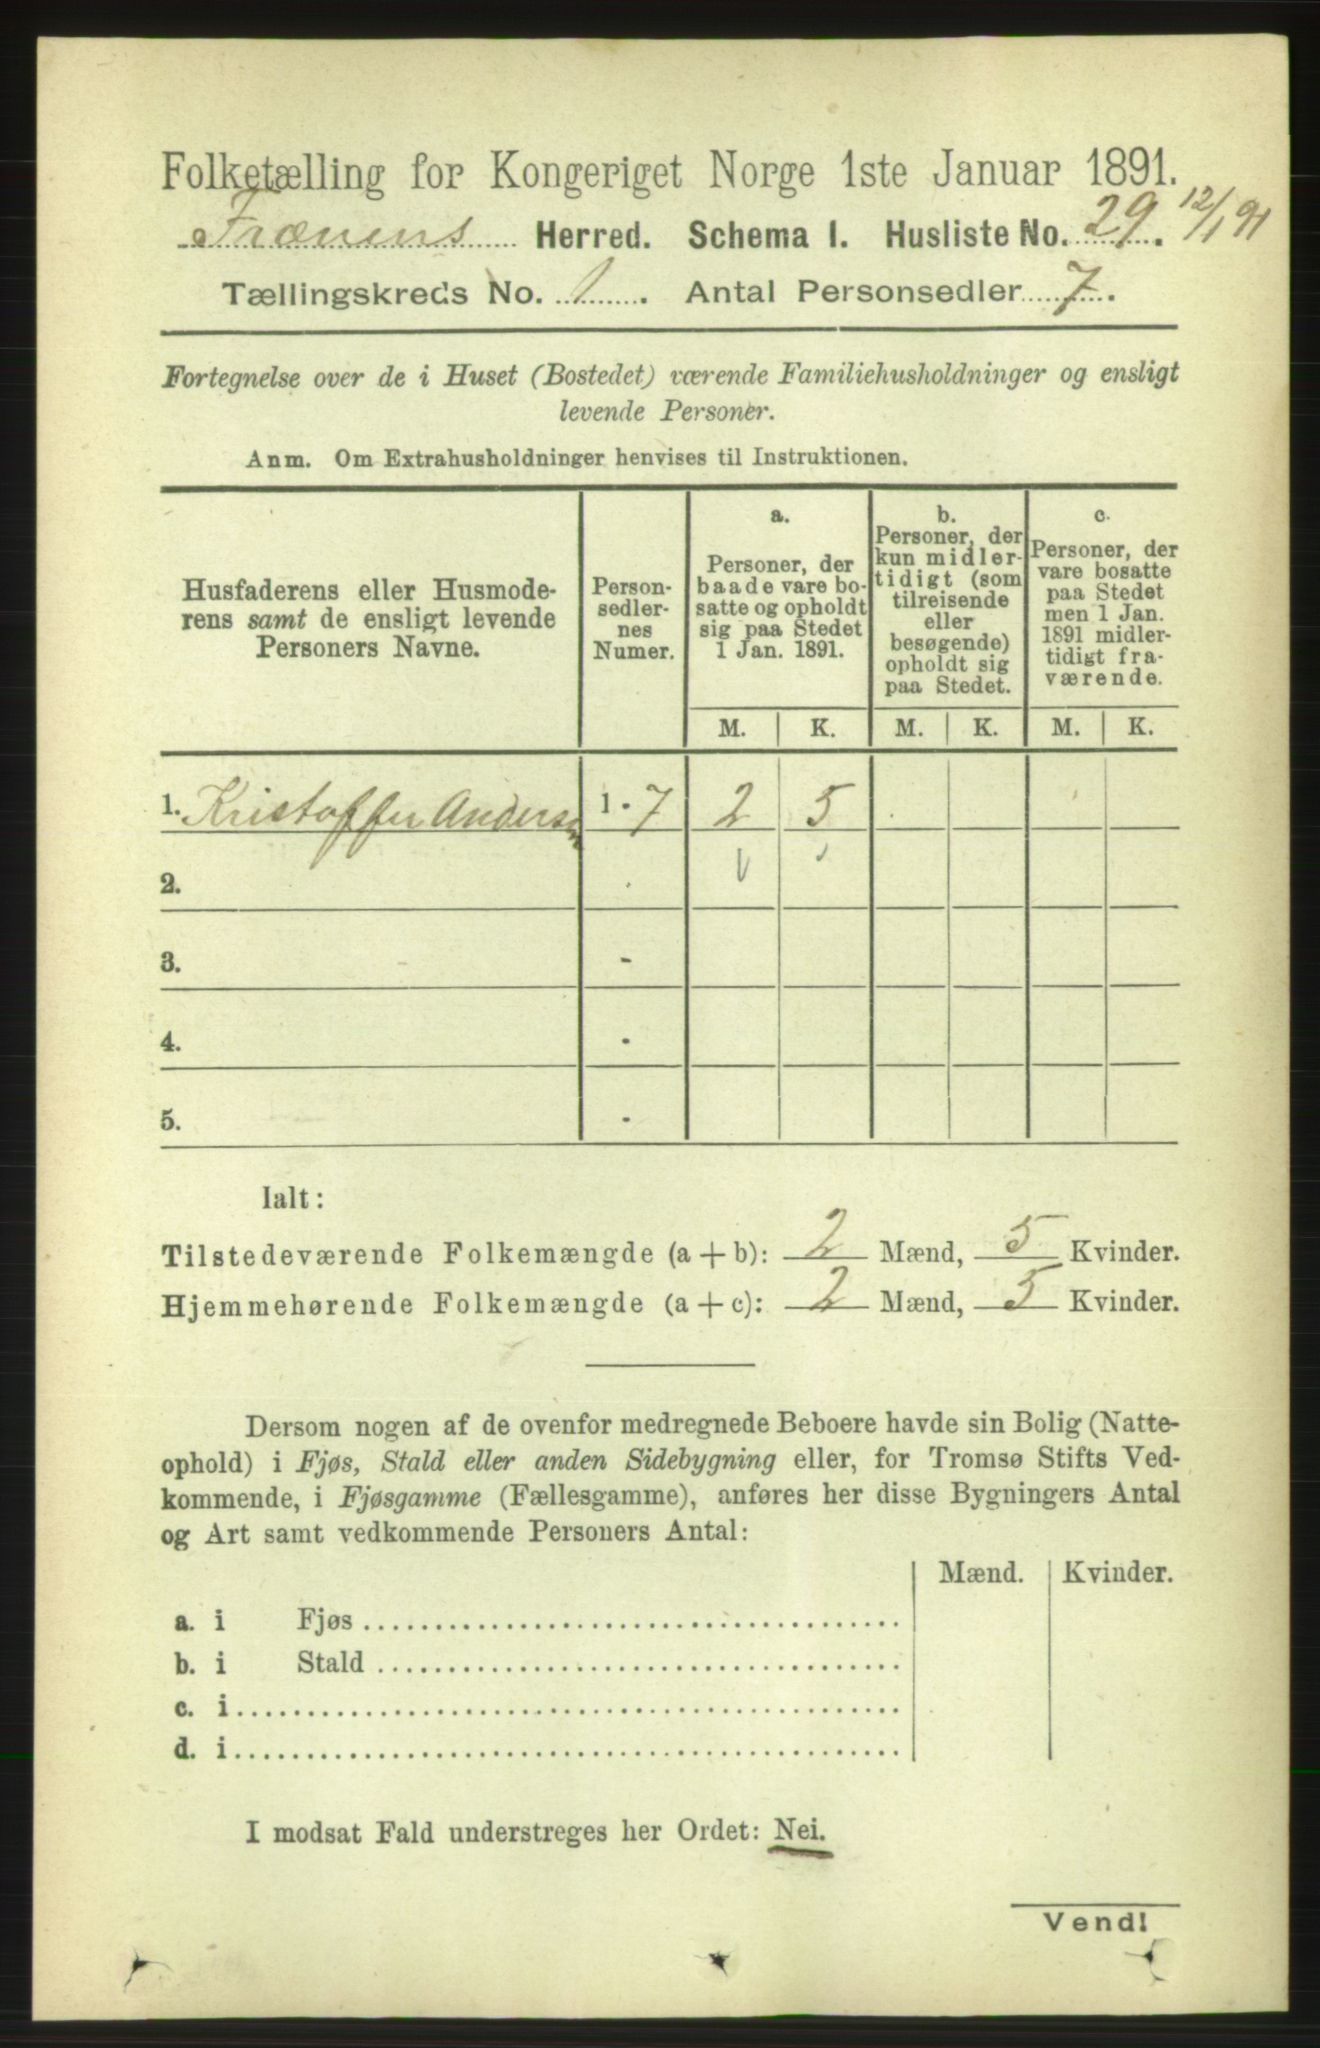 Folketælling for Kongeriget Norge 1ste Januar 1891.
Frænens Herred. Schema I. Husliste No. 29. 12/1 91
Tællingskreds No. 1. Antal Personsedler 7.
Fortegnelse over de i Huset (Bostedet) værende Familiehusholdninger og ensligt
levende Personer.
Anm. Om Extrahusholdninger henvises til Instruktionen.
Husfaderens eller Husmode-
rens samt de ensligt levende
Personers Navne.
Person-
sedler-
nes
Numer.
a.
Personer, der
baade vare bo-
satte og opholdt
sig paa Stedet
1 Jan. 1891.
b.
Personer, der
kun midler-
tidigt (som
tilreisende
eller
besøgende)
opholdt sig
paa Stedet.
c.
Personer, der
vare bosatte
paa Stedet
men 1 Jan.
1891 midler-
tidigt fra-
værende.
M. K. M. K. M. K.
1. Kristoffer Andersn 1 - 7 2 5
2. -
3. -
4. -
5. -
Ialt:
Tilstedeværende Folkemængde (a + b): 2 Mænd, 5 Kvinder.
Hjemmehørende Folkemængde (a + c): 2 Mænd, 5 Kvinder.
Dersom nogen af de ovenfor medregnede Beboere havde sin Bolig (Natte-
ophold) i Fjøs, Stald eller anden Sidebygning eller, for Tromsø Stifts Ved-
kommende, i Fjøsgamme (Fællesgamme), anføres her disse Bygningers Antal
og Art samt vedkommende Personers Antal:
Mænd. Kvinder.
a. i Fjøs
b. i Stald
c. i
d. i
I modsat Fald understreges her Ordet: Nei.
Vend!